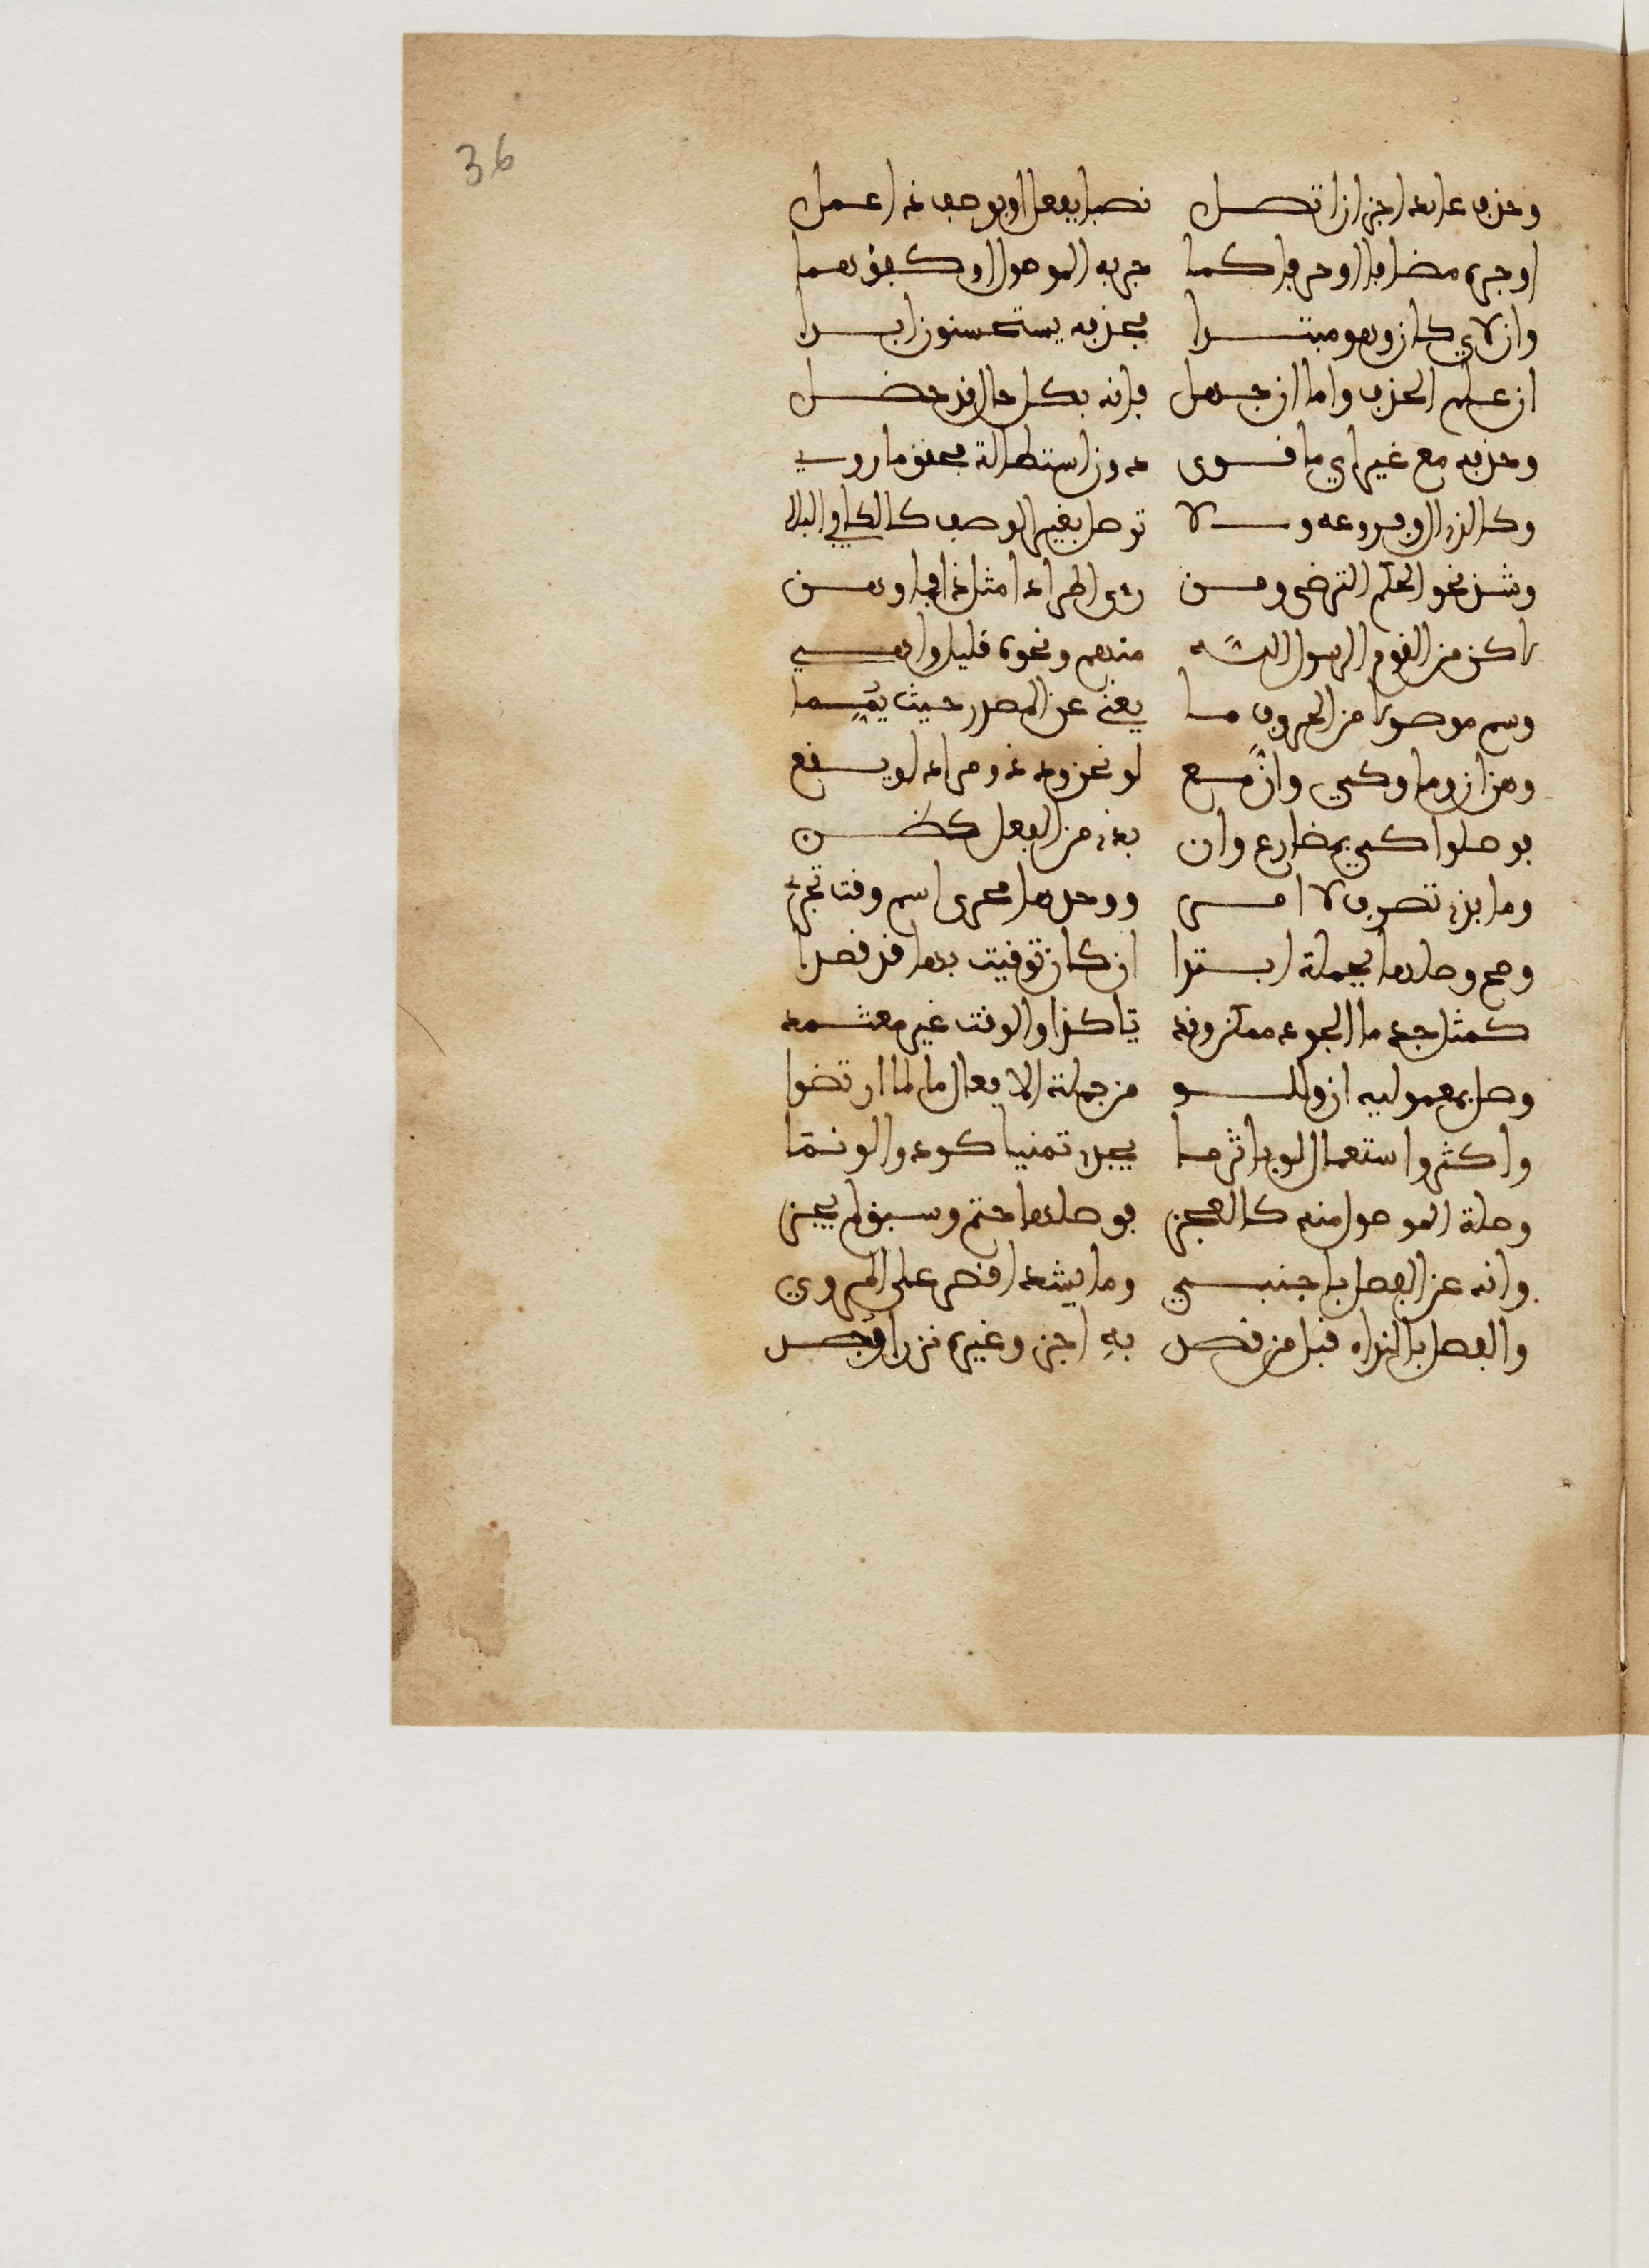 36
وحذف عائد اجز ان اتصل نصبا بفعل او بوصف ذا عمل
او جره مضاف او حرف كما جر به الموصول او كفو هما
وان لاي كان وهو مبتدا فحذفه يستحسنون ابدا
ان علم الحذف واما ان جهل فانه بكل حال قد حضل
وحذفه مع غير اي ما قوى دون استطالة بحيث ما روي
وكالذي ال وفروعه ولا توصل بغير الوصف كالكافي البلا
وشذ نحو الحكم الترضى ومن رءى اطراد مثل ذا فما وهن
من القوم الرسول الله منهم ونحوه قليل واهي
وسم موصولا من الحروف ما يغني عن المصدر حيث يمما
وهن ان وما وكي وان مع لو نحو ود ذو مراد لو يسقع
بوصلوا كي بمضارع وان بذي من الفعل كظن
وما بذي تصرف لا امر ووحدها مجرى اسم وقت تجري
وصح وصلها بجملة ابتدا ان كان توقيت بها قد قصدا
كمثل جد ما الجود ممكن وقد تا كذا والوقت غير معتمد
وصل بمعموليه ان ولو من جملة الافعال ما لما ارتضوا
واكثروا استعمال لو باثر ما يبدي تمنيا كود والونما
وصلة الموصول منه كالعجز بوصلها حتم وسبق لم يجز
وانه عن الفصل باجنبي وما يشذ اقصر على المروي
والفصل بالنداء قبل من قصد به اجز وغيره نزرا وجد